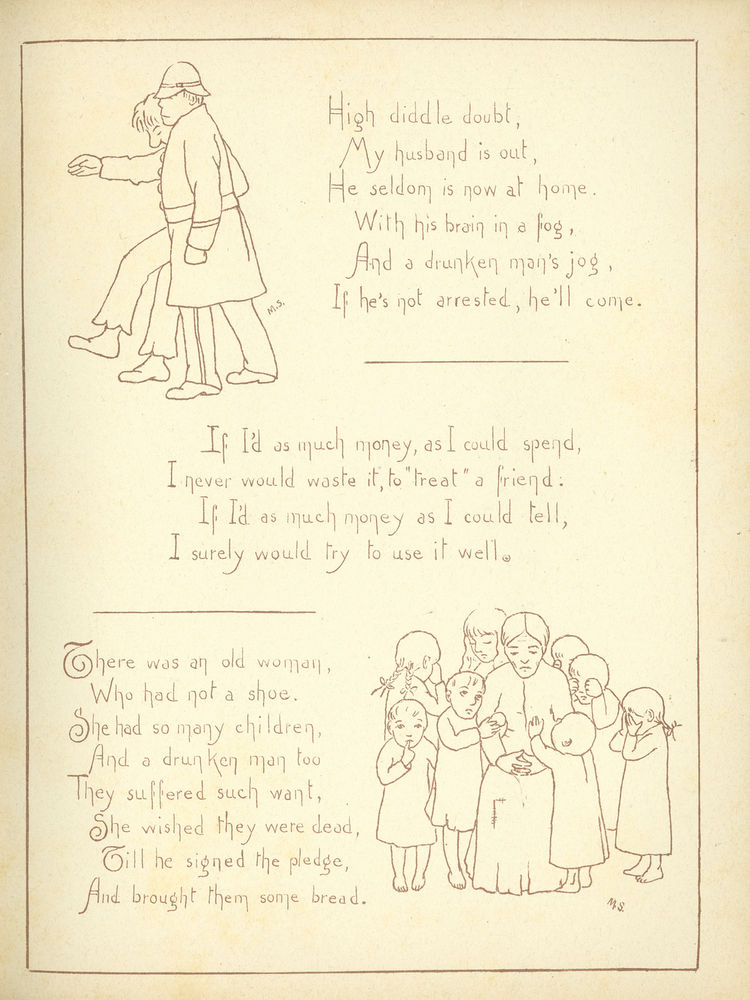 High diddle doubt,
My husband is out,
He seldom is now at home.
With his brain in a fog,
And a drunken man's jog,
If he's not arrested, he'll come.
M.S.
If I'd as much money, as I could spend,
I never would waste it, to "treat" a friend:
If I'd as much money as I could tell,
I surely would try to use it well.
There was an old woman,
Who had not a shoe.
She had so many children,
And a drunken man too
They suffered such want,
She wished they were dead,
Till he signed the pledge,
And brought them some bread.
M.S.